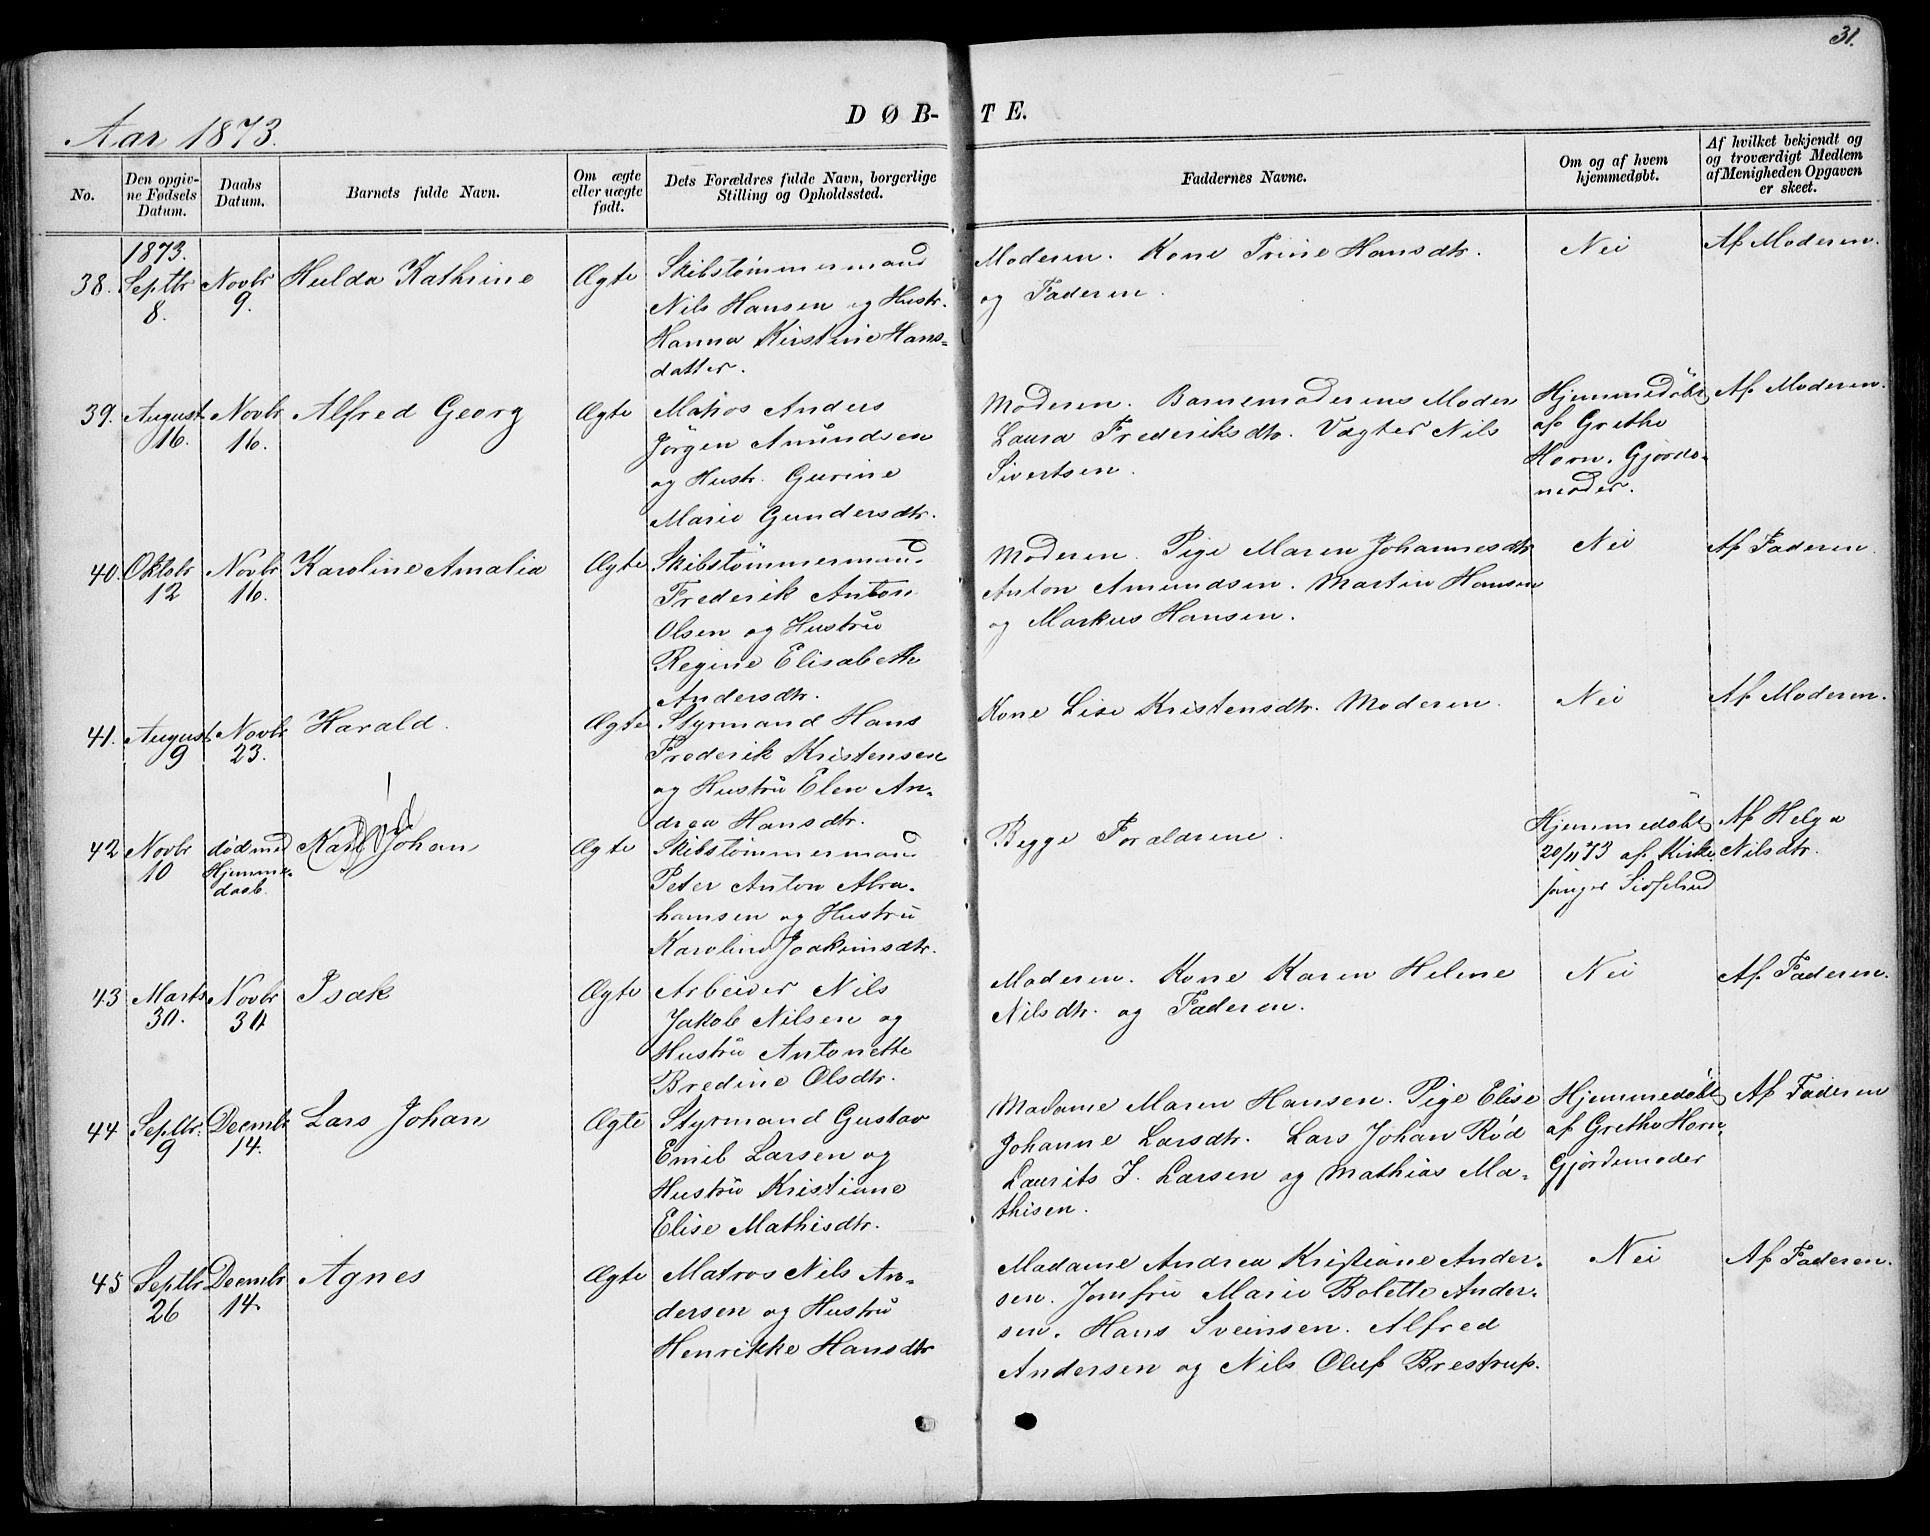 31.
Aar 1873.
DØB-
TE.
No.
Den opgiv-
ne Fødsels
Datum.
Daabs
Datum.
Barnets fulde Navn.
Om ægte
eller uægte
født.
Dets Forældres fulde Navn, borgerlige
Stilling og Opholdssted.
Faddernes Navne.
Om og af hvem
hjemmedøbt.
Af hvilket bekjendt og
og troværdigt Medlem
af Menigheden Opgaven
er skeet.
1873.
38. Septbr Novbr Hulda Kathrine Ægte Skibstømmermand
8. 9. Nils Hansen og Hustr.
Hanna Kirstine Hans-
datter.
Moderen. Kone Trine Hansdtr.
og Faderen.
Nei
Af Moderen.
39. August Novbr Alfred Georg Ægte Matros Anders
16. 16. Jörgen Amundsen
og Hustr. Gurine
Marie Gundersdtr.
Moderen. Barnemoderens Moder
Laura Frederiksdtr. Vægter Nils
Sivertsen.
Hjemmedöbt
af Grethe
Horn. Gjorde-
moder.
Af Moderen.
40. Oktobr Novbr Karoline Amalia Ægte Skibstömmermand
12 16. Frederik Anton
Olsen og Hustru
Regine Elisabeth
Andersdtr.
Moderen. Pige Maren Johannesdtr
Anton Amundsen. Martin Hansen
og Markus Hansen.
Nei
Af Faderen.
41. August Novbr Harald. Ægte Styrmand Hans
9 23. Frederik Kristensen
og Hustru Elen An-
drea Hansdtr.
Kone Lise Kristensdtr. Moderen.
Nei
Af Moderen.
Död
42 Novbr død med Karl Johan Ægte Skibstömmermand
10 Hjemme-
daab.
Peter Anton Abra-
hamsen og Hustru
Karoline Joakimsdtr.
Begge Forældrene.
Hjemmedøbt
20/11 73 af Kirke
sanger
Af Helga
Nilsdtr.
43 Marts Novbr Isak Ægte Arbeider Nils
30. 30 Jakob Nilsen og
Hustru Antonette
Bredine Olsdtr.
Moderen. Kone Karen Helene
Nilsdtr. og Faderen.
Nei
Af Faderen.
44 Septbr. Decmbr Lars Johan Ægte Styrmand Gustav
9 14. Emil Larsen og
Hustru Kristiane
Elise Mathisdtr.
Madame Maren Hansen. Pige Elise
Johanne Larsdtr. Lars Johan Rød
Laurits J. Larsen og Mathias Ma-
thisen.
Hjemmedøbt
af Grethe Horn,
Gjördemoder
Af Faderen
45 Septbr Decmbr Agnes Ægte Matros Nils An-
26 14. dersen og Hustru
Henrikke Hansdtr
Madame Andrea Kristiane Ander-
sen. Jomfru Marie Bolette Ander-
sen. Hans Sveinsen. Alfred
Andersen og Nils Oluf Brestrup.
Nei
Af Faderen.